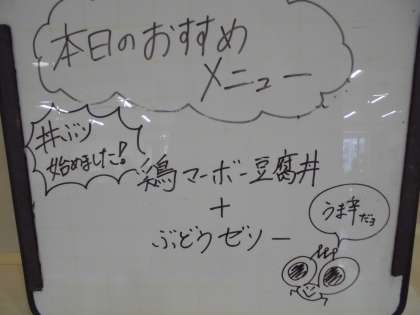 本日のおすすめ
メニュー
丼ぶり
始めました!
鶏マーボー豆腐丼
+
ぶどうゼリー
うま辛だョ